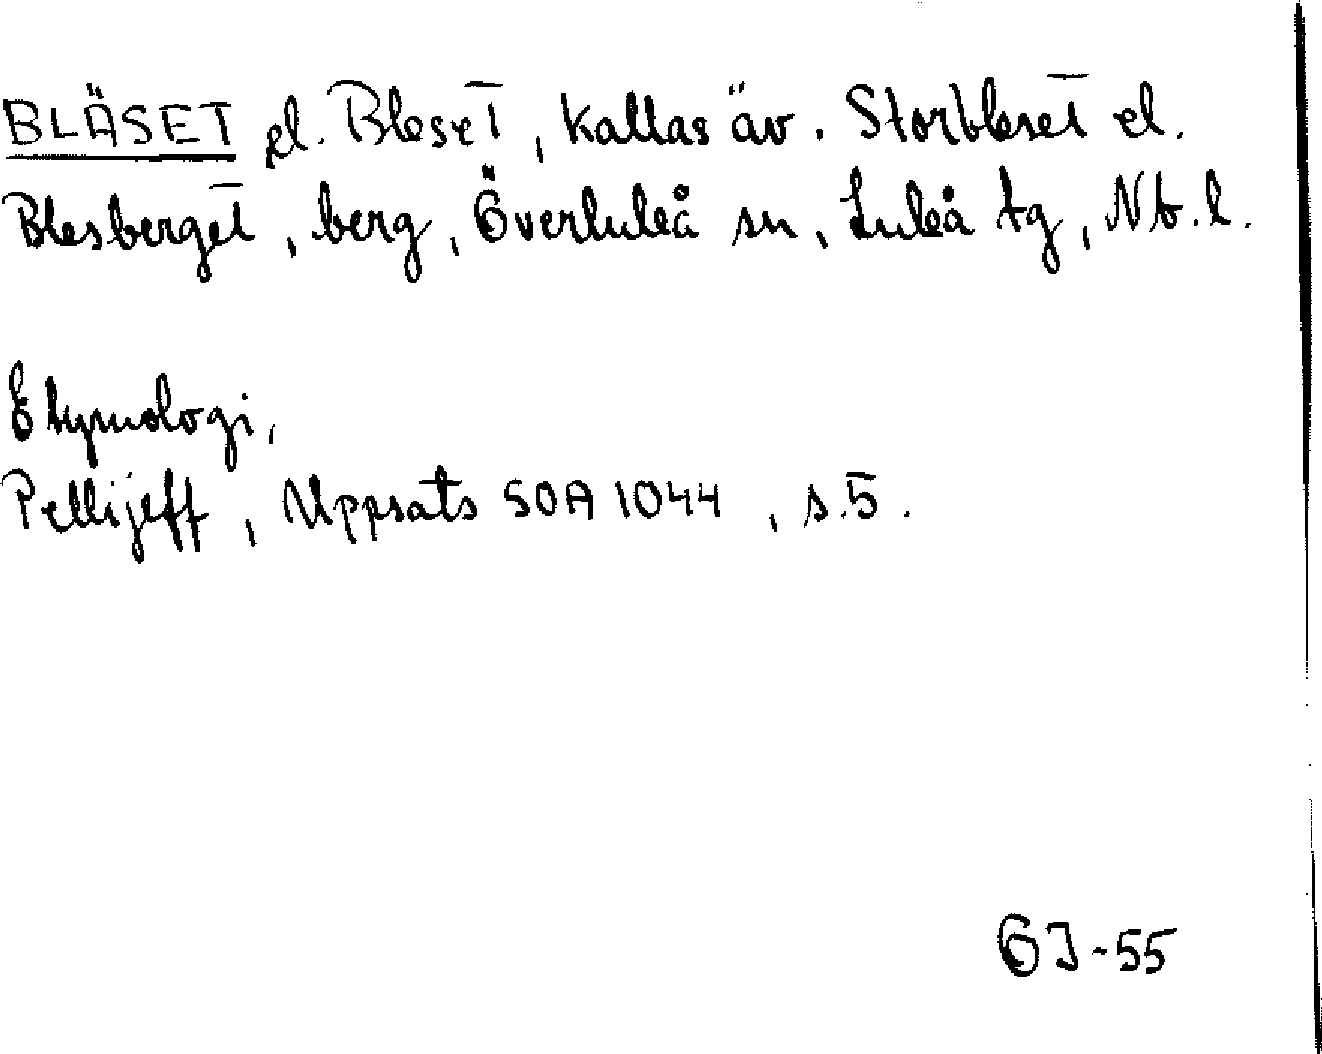 BLÄSET el. Bleset, kallas äv. Storbleset el.
Blesberget, berg, Överluleå sn, Luleå tg, Nb.l.
Etymologi,
Pellijeff, Uppsats SOA 1044, s.5.
GJ-55